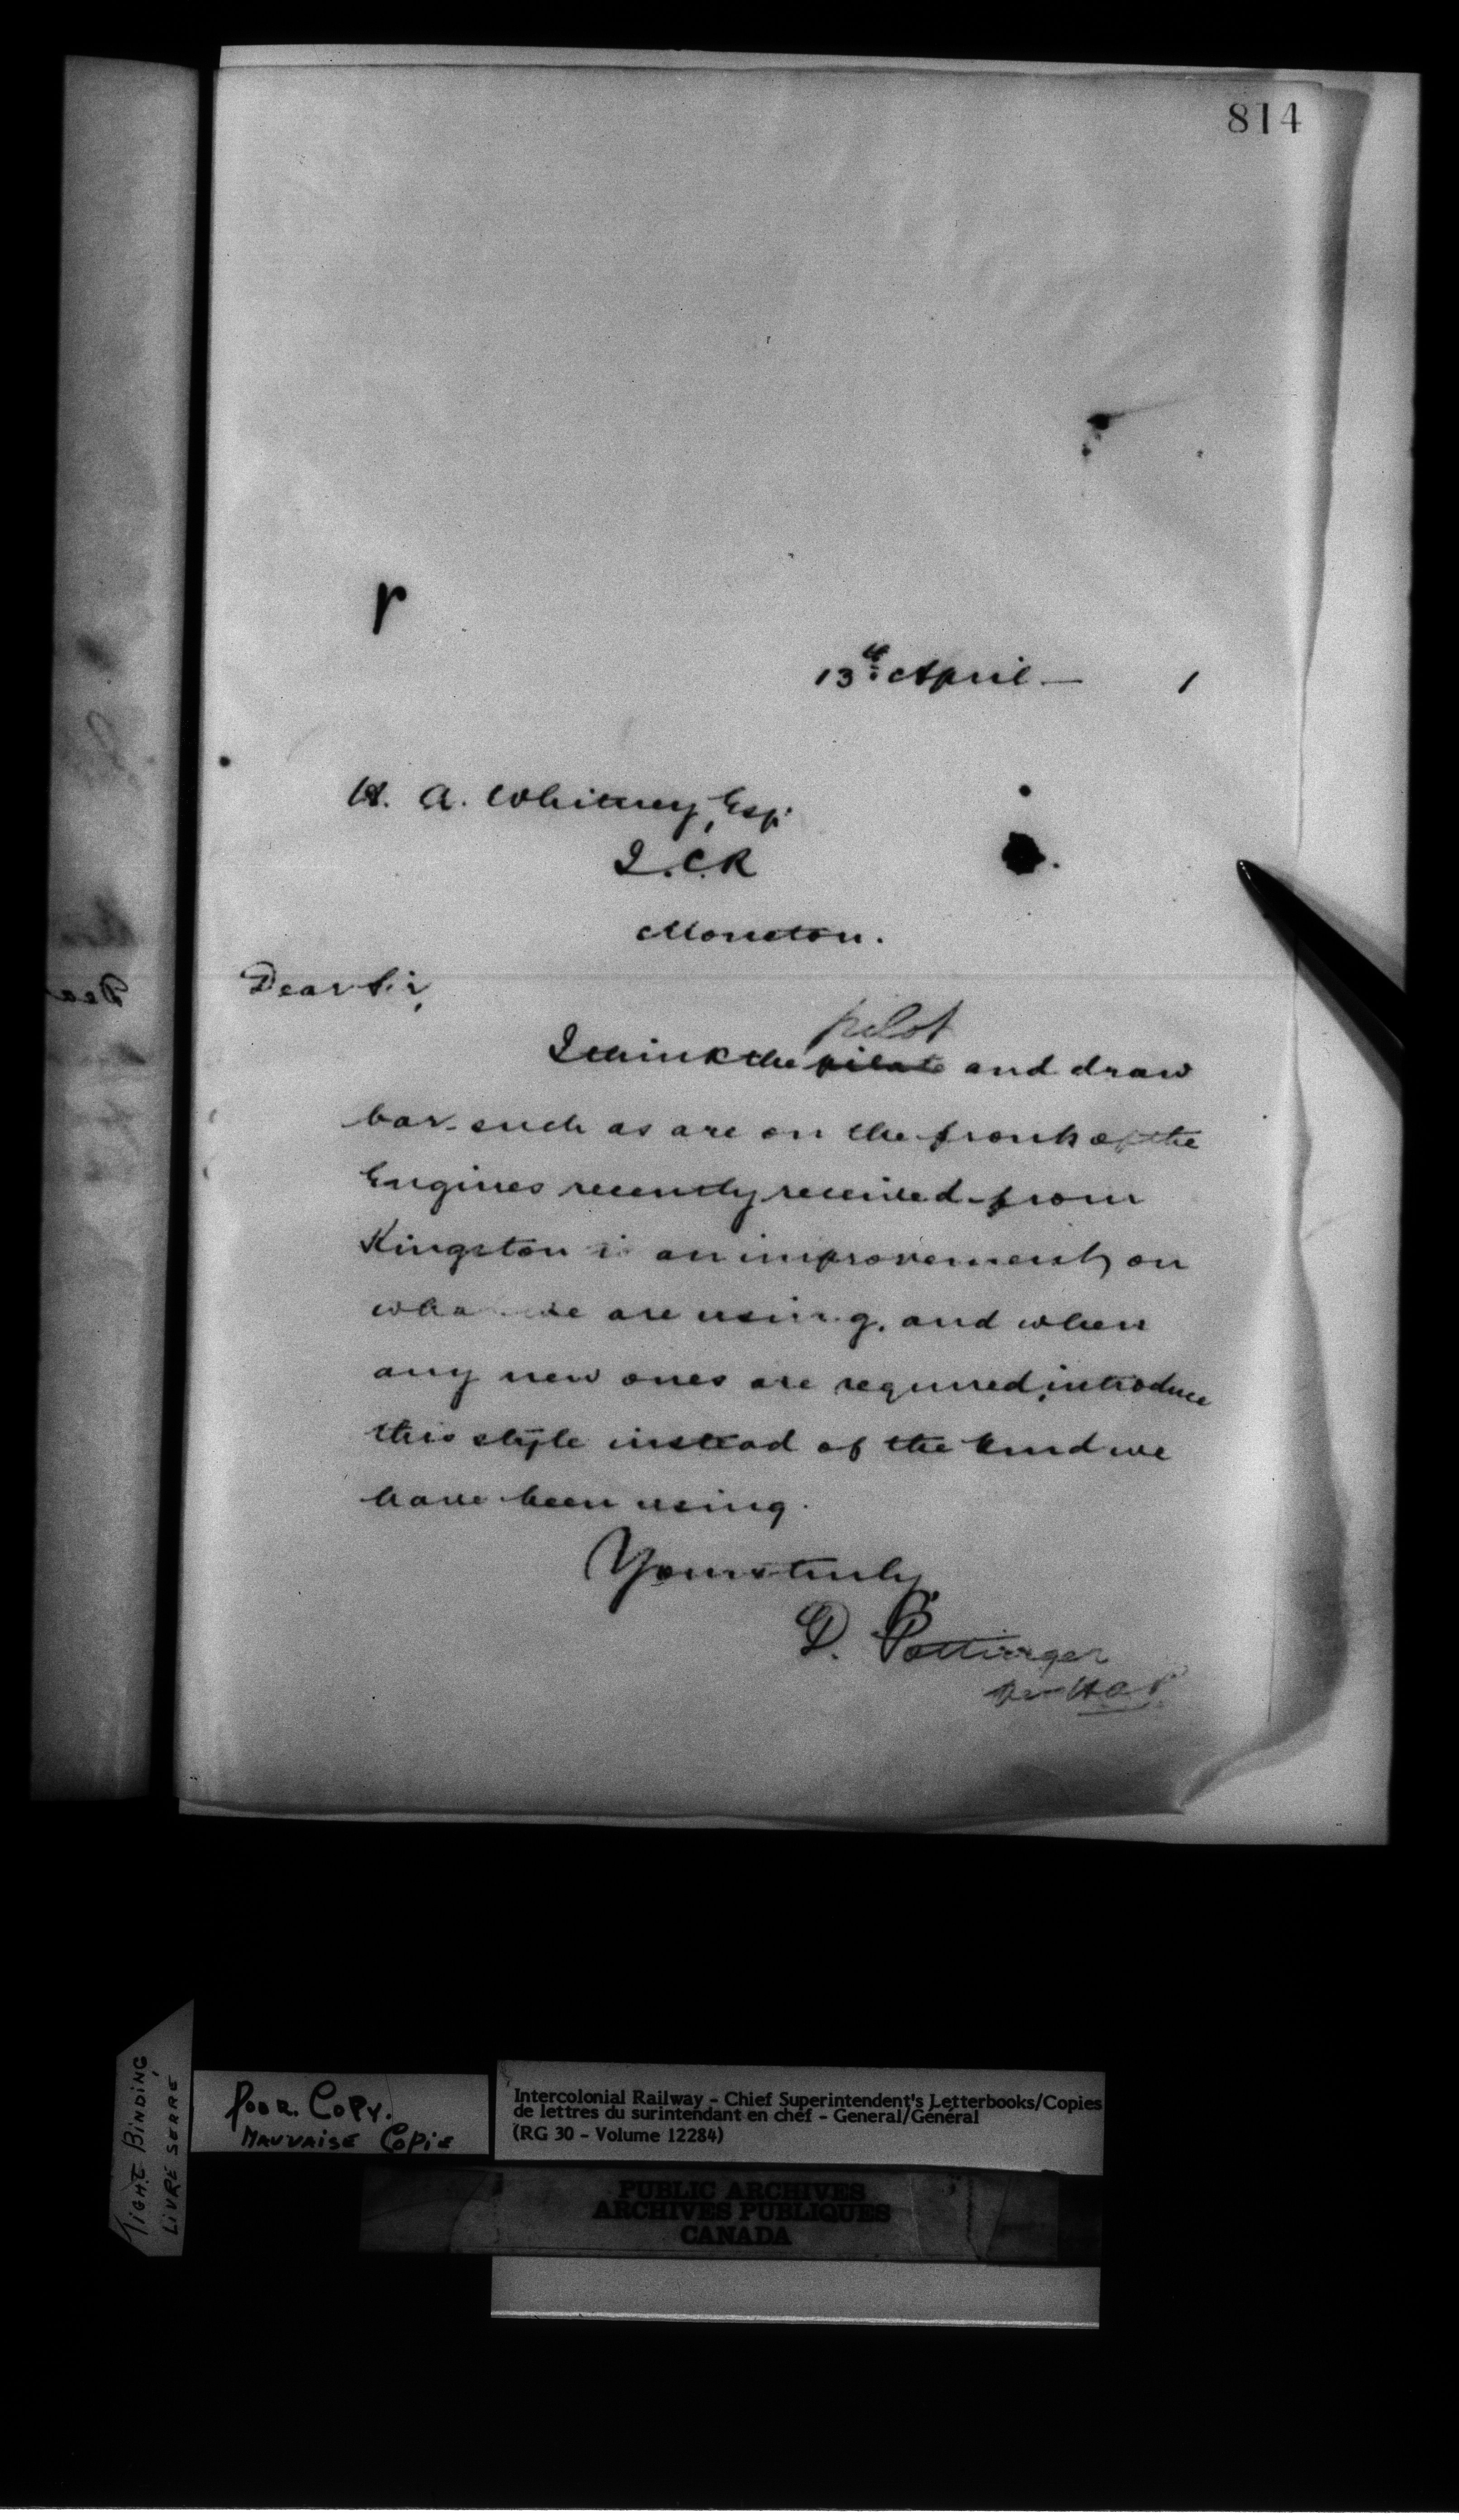 814
13th April — 1
H. A. Whitney, Esq.
I.C.R
Moncton.
Dear Sir,
pilot
I think the pilate and draw
bar such as are on the front of the
Engines recently received from
Kingston is an improvement, on
what we are using, and when
any new ones are required, introduce
this style instead of the kind we
have been using.
Yours truly,
D. Pottinger
per
TIGHT BINDING
LIVRE SERRÉ
POOR COPY.
MAUVAISE COPIE
Intercolonial Railway - Chief Superintendent's Letterbooks/Copies
de lettres du surintendant en chef - General/Général
(RG 30 - Volume 12284)
PUBLIC ARCHIVES
ARCHIVES PUBLIQUES
CANADA